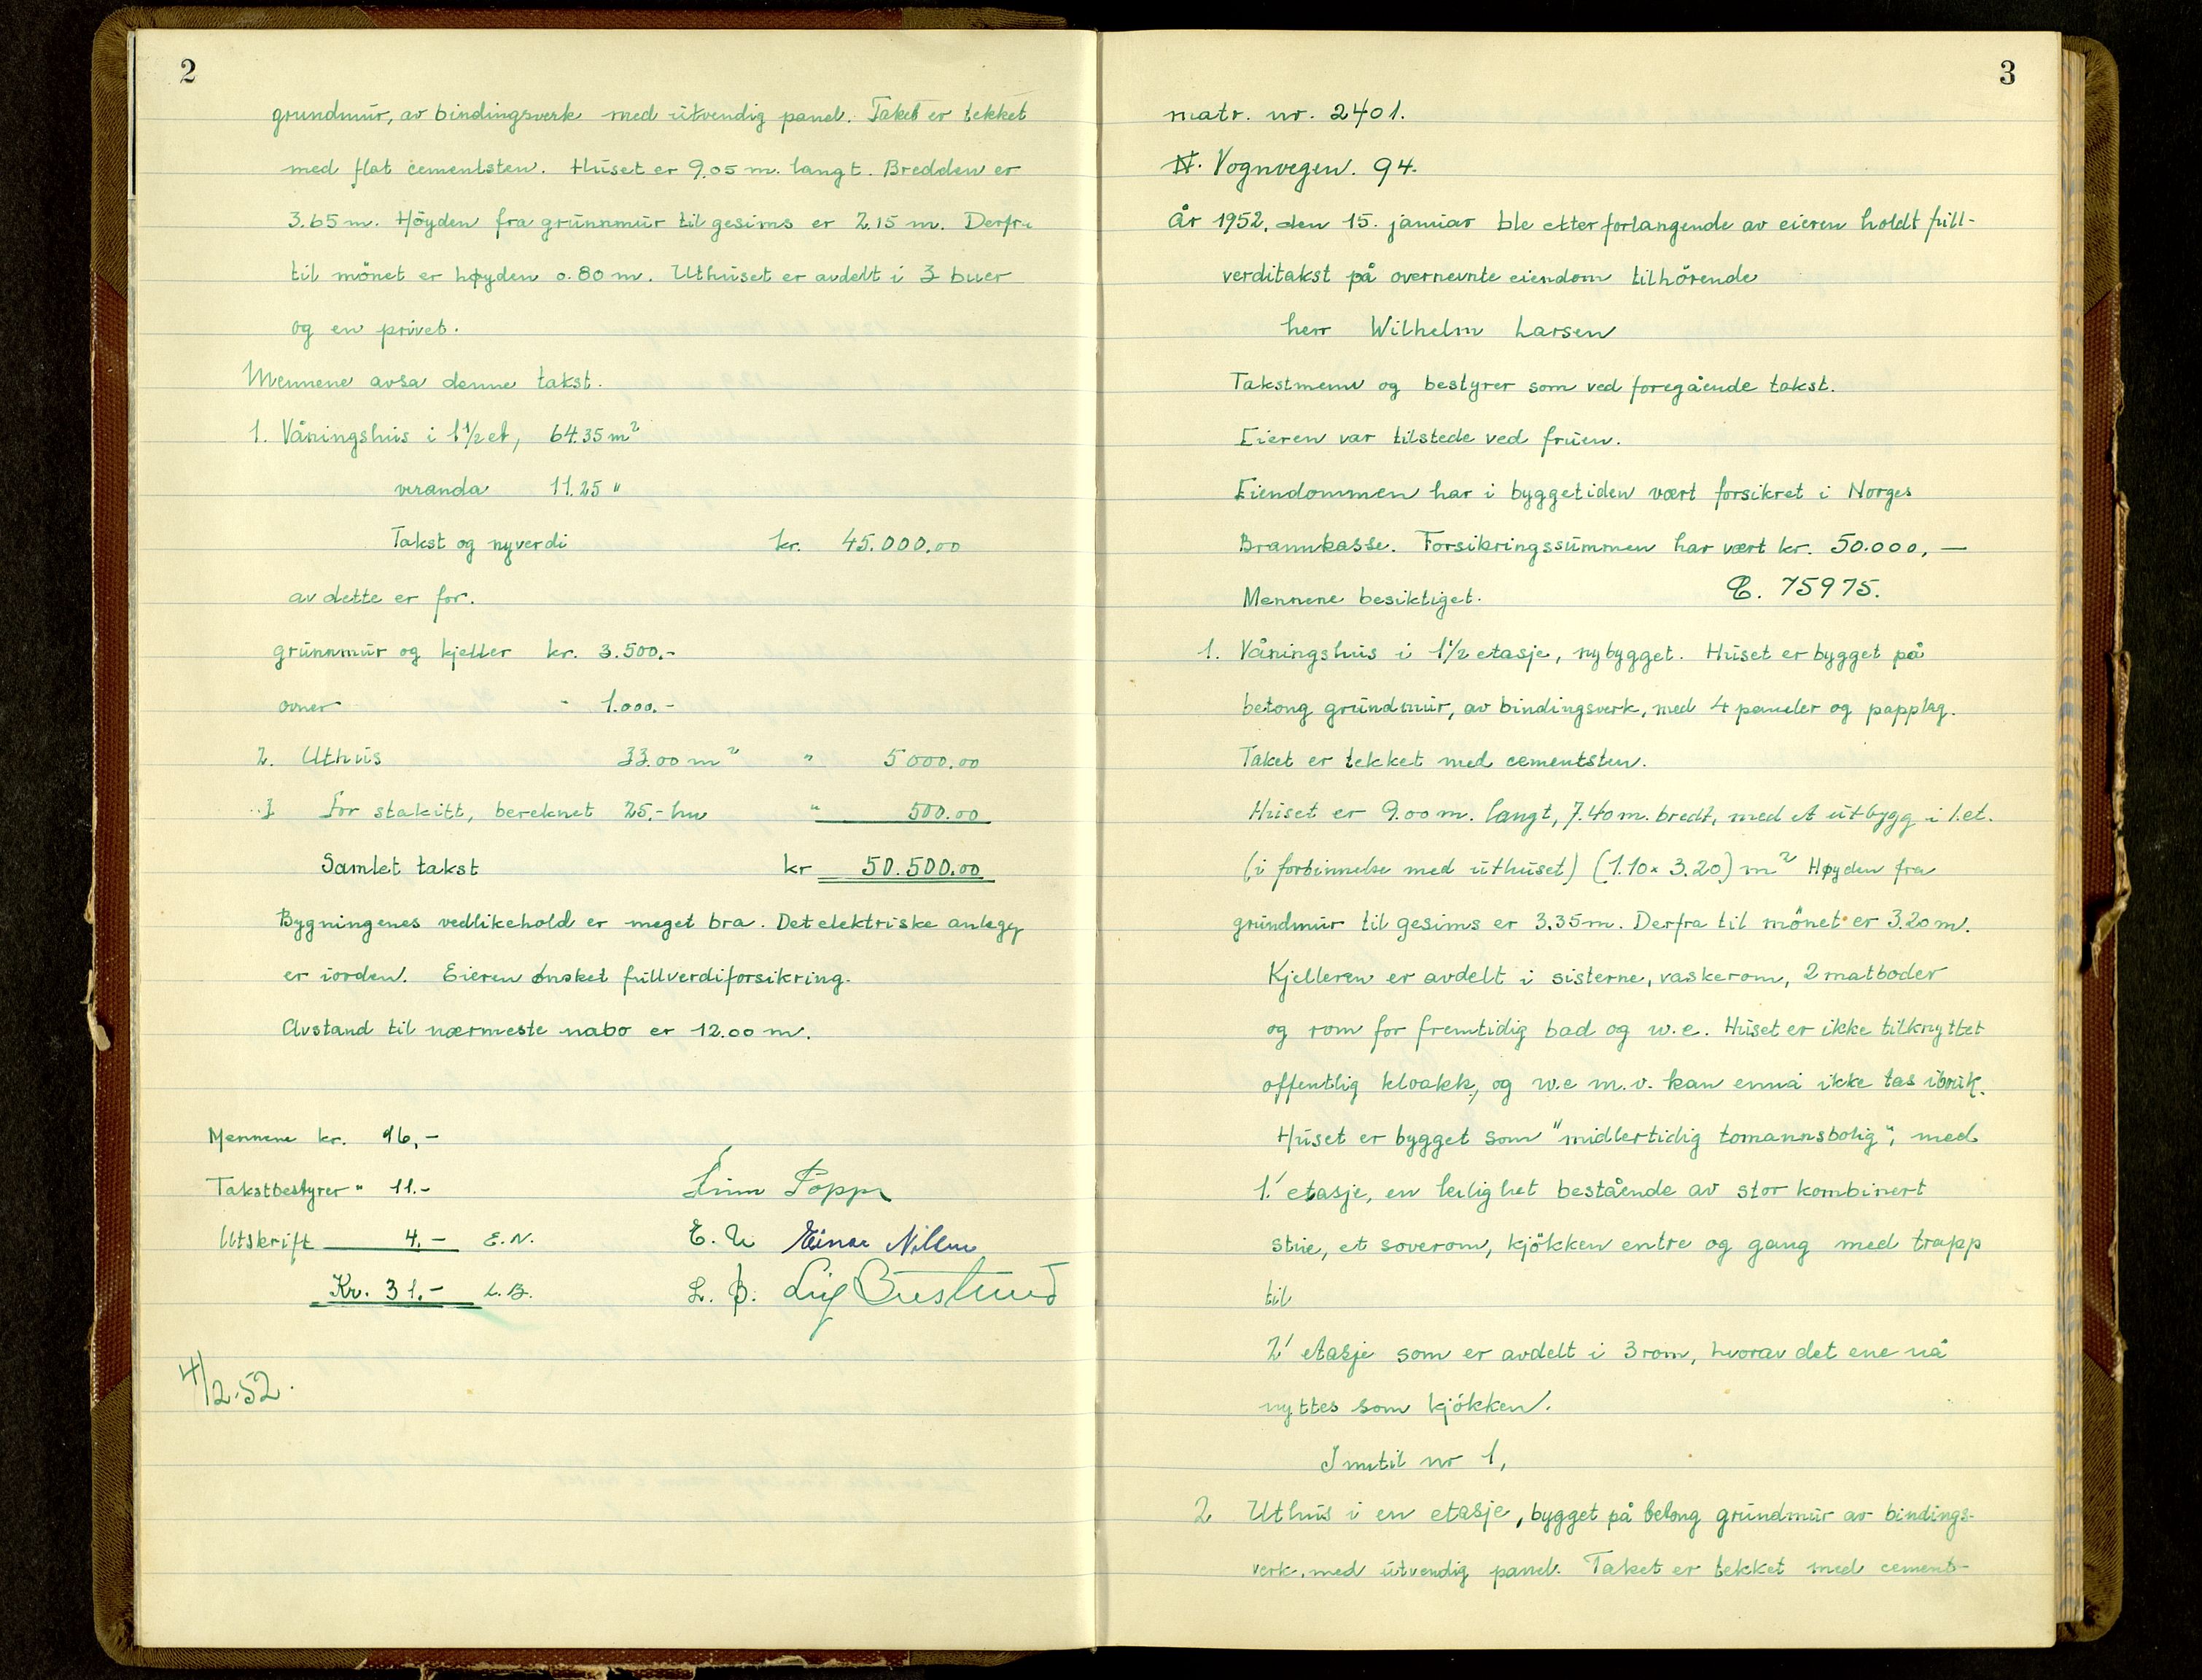 2
grundmur, av bindingsverk med utvendig panel. Taket er tekket
med flat cementsten. Huset er 9.05 m. langt. Bredden er
3.65 m. Höyden fra grunnmur til gesims er 2.15 m. Derfra
til mönet er høyden 0.80 m. Uthuset er avdelt i 3 buer
og en privet.
Mennene avsa denne takst.
1. Våningshus i 1 1/2 et, 64.35 m²
veranda 11.25 "
Takst og nyverdi kr. 45.000.00
av dette er for.
grunnmur og kjeller kr. 3.500.-
ovner " 1.000.-
2. Uthus 33.00 m² " 5000.00
3 For stakitt, bereknet 25,- " 500.00
Samlet takst kr 50.500.00
Bygningenes vedlikehold er meget bra. Det elektriske anlegg
er iorden. Eieren ønsket fullverdiforsikring.
Avstand til nærmeste nabo er 12.00 m.
Mennene kr. 16,-
Takstbestyrer " 11.-
Utskrift 4.- E.N.
Kr. 31.- L.B.
E. N. Einar
L. B.
4/2.52.
3
matr. nr. 2401.
N. Vognvegen. 94.
År 1952, den 15. januar ble etter forlangende av eieren holdt full-
verditakst på overnevnte eiendom tilhörende
herr Wilhelm Larsen
Takstmenn og bestyrer som ved foregående takst.
Eieren var tilstede ved fruen.
Eiendommen har i byggetiden vært forsikret i Norges
Brannkasse. Forsikringssummen har vært kr. 50.000,—
Mennene besiktiget. 75975.
1. Våningshus i 1 1/2 etasje, nybygget. Huset er bygget på
betong grundmur, av bindingsverk, med 4 paneler og papplag.
Taket er tekket med cementsten.
Huset er 9.00 m. langt, 7.40 m. bredt, med et utbygg i 1.et.
(i forbinnelse med uthuset) (1.10 x 3.20) m² Høyden fra
grundmur til gesims er 3.35 m. Derfra til mönet er 3.20 m.
Kjelleren er avdelt i sisterne, vaskerom, 2 matboder
og rom for fremtidig bad og w.c. Huset er ikke tilknyttet
offentlig kloakk, og w.c m.v. kan ennå ikke tas ibruk.
Huset er bygget som "midlertidig tomannsbolig", med
1.' etasje, en leilighet bestående av stor kombinert
stue, et soverom, kjökken entre og gang med trapp
til
2' etasje som er avdelt i 3 rom, hvorav det ene nå
nyttes som kjökken.
Inntil nr 1,
2 Uthus i en etasje, bygget på betong grundmur av bindings-
verk, med utvendig panel. Taket er tekket med cement-